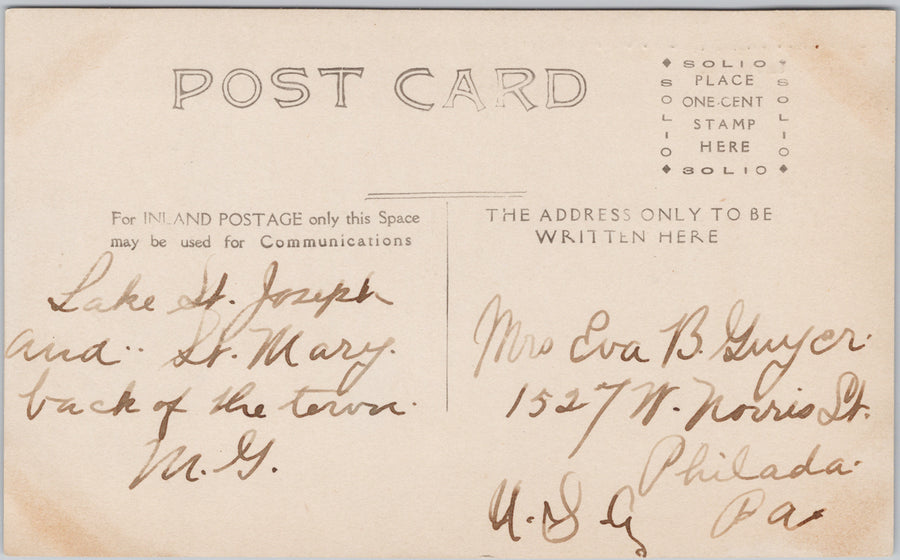 POST CARD
SOLIO
SOLIO
SOLIO
SOLIO
PLACE
ONE-CENT
STAMP
HERE
For INLAND POSTAGE only this Space
may be used for Communications
THE ADDRESS ONLY TO BE
WRITTEN HERE
Lake St. Joseph
and.. St. Mary.
back of the town.
M. G.
Mrs Eva B. Guyer.
1527 W. Norris St.
Philada.
Pa
U. S. A